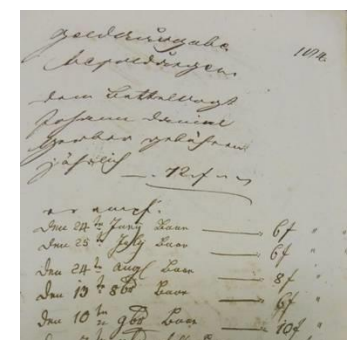 Geldausgabe
104.
Besoldungen
dem Bettelvogt
Johann Daniel
Gerber gebühren
jährlich — 12 f
er empf.
Den 24t Juny Baar — 6 f
Den 25t July Baar — 6 f
Den 24t Augl Baar — 8 f
Den 19t 8br Baar — 6 f
Den 10t 9br Baar — 10 f